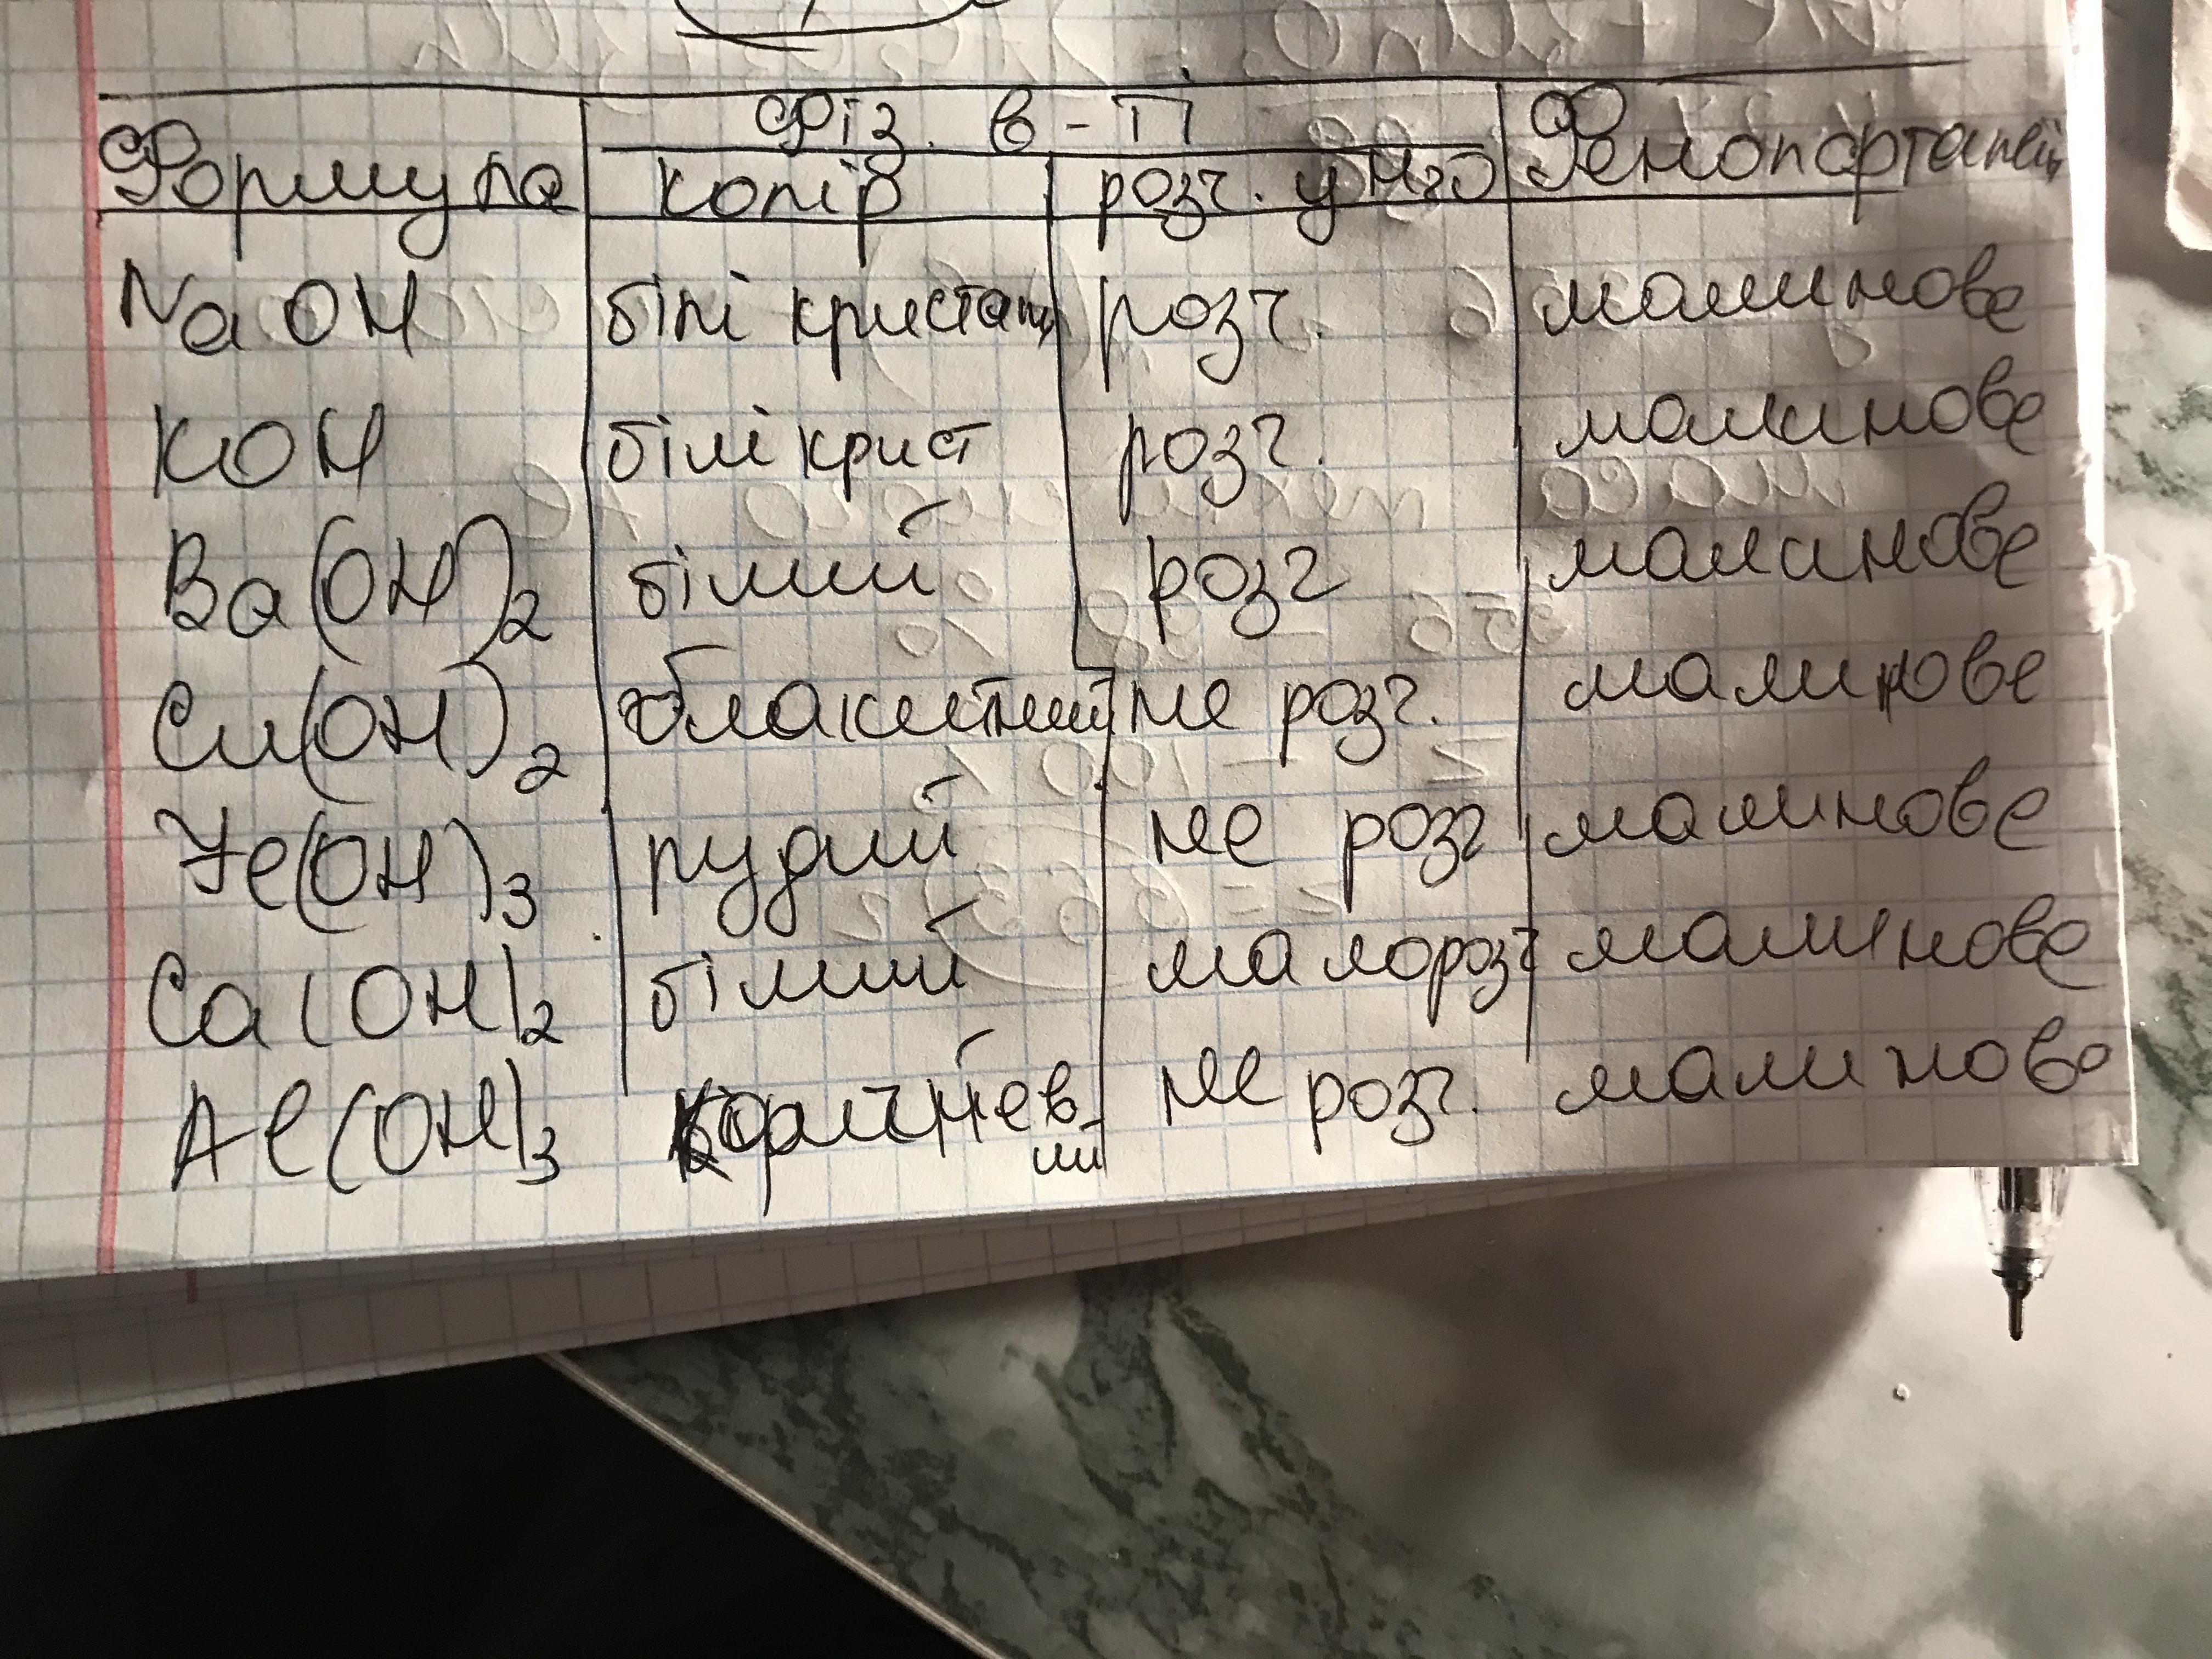 Фіз. в-ті
Формула колір розч. у H₂O Фенолфталеїн
NaOH білі кристали розч. малинове
KOH білі крист розч. малинове
Ba(OH)₂ білий розч малинове
Cu(OH)₂ блакитний не розч. малинове
Fe(OH)₃ рудий не розч малинове
Ca(OH)₂ білий малорозч малинове
Al(OH)₃ коричнев не розч. малинове
ий